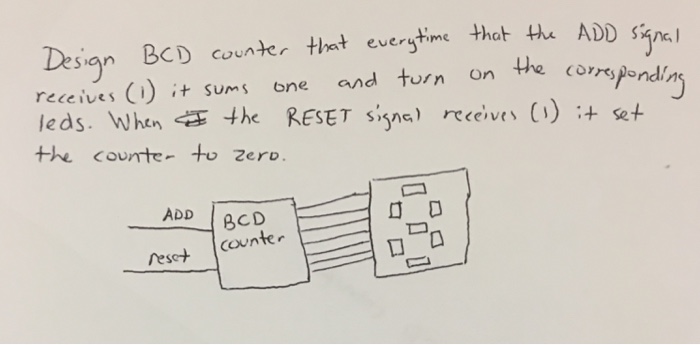 Design BCD counter that everytime that the ADD signal
receives (1) it sums one and turn on the corresponding
leds. When the RESET signal receives (1) it set
the counter to zero.
ADD
BCD
counter
reset